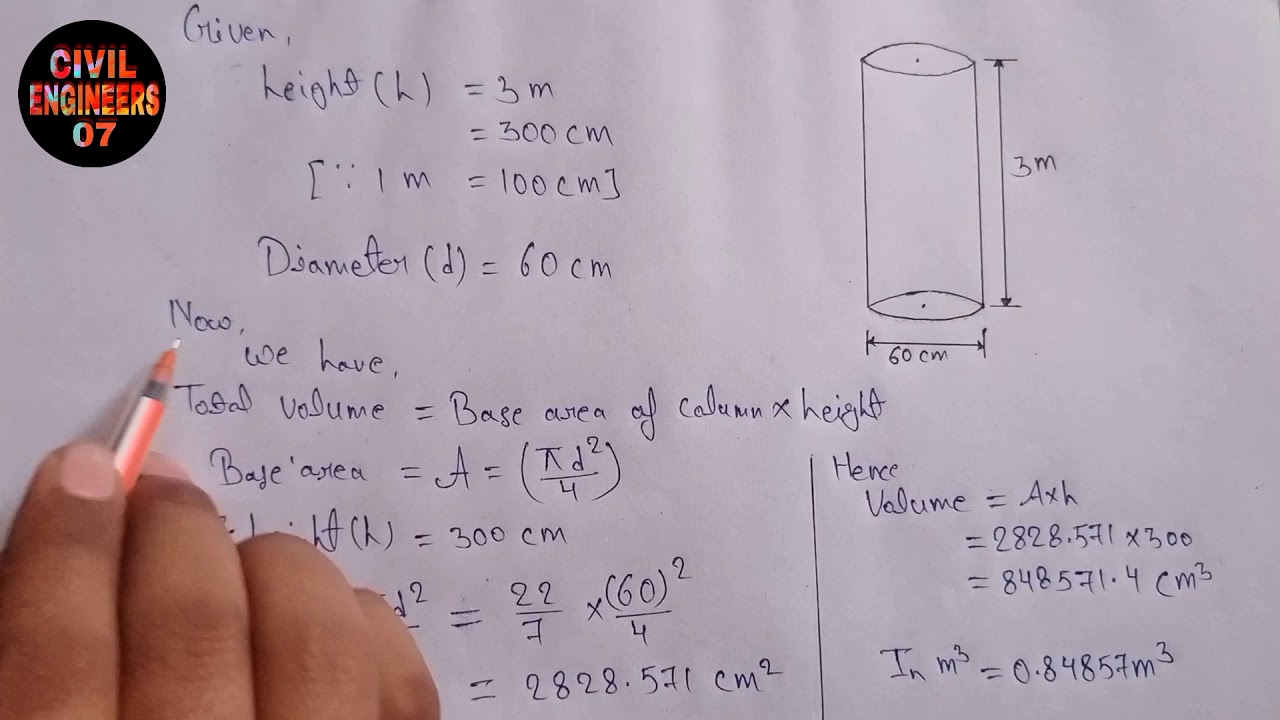 CIVIL
ENGINEERS
07
Given,
height (h) = 3 m
= 300 cm
[∵ 1 m = 100 cm]
Diameter (d) = 60 cm
3 m
60 cm
Now,
we have,
Total volume = Base area of column × height
Base area = A = (πd²/4)
(h) = 300 cm
d² = 22/7 × (60)²/4
= 2828.571 cm²
Hence
Volume = A×h
= 2828.571 × 300
= 848571.4 cm³
In m³ = 0.84857 m³